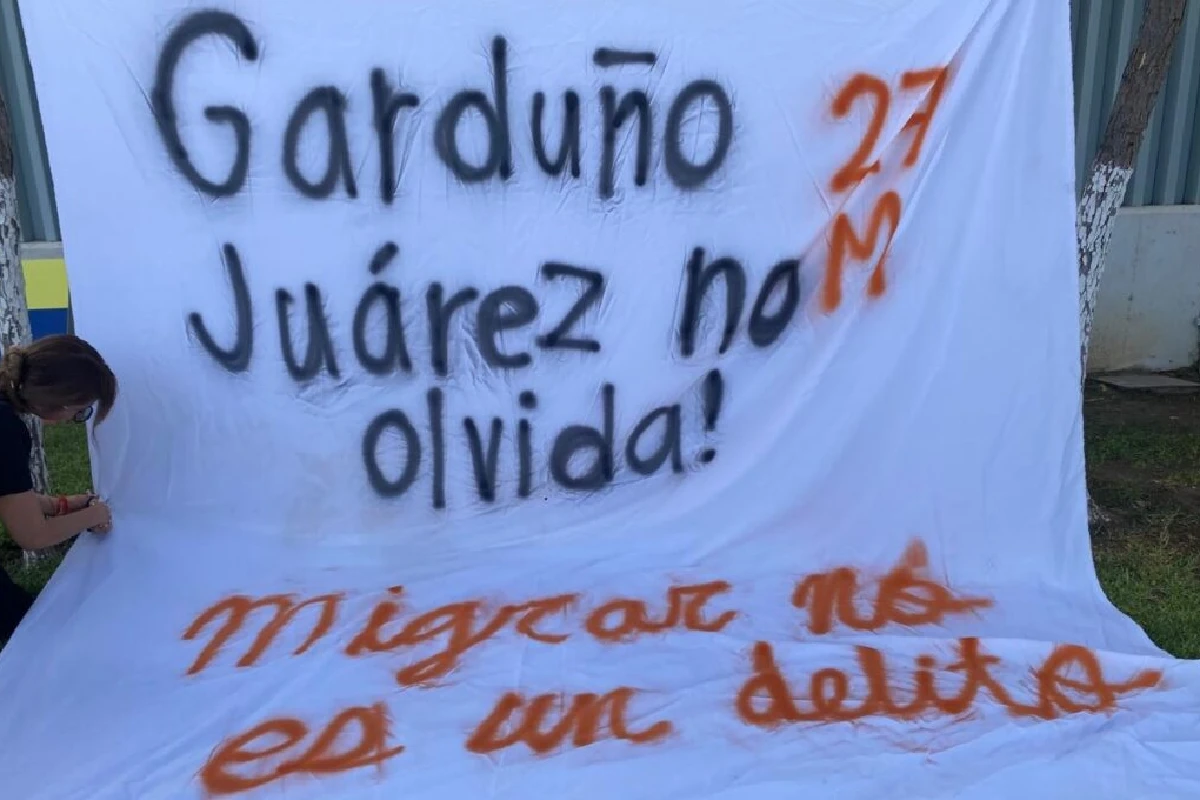 Garduño
Juárez no
olvida!
27
M
Migrar nó
es un delito